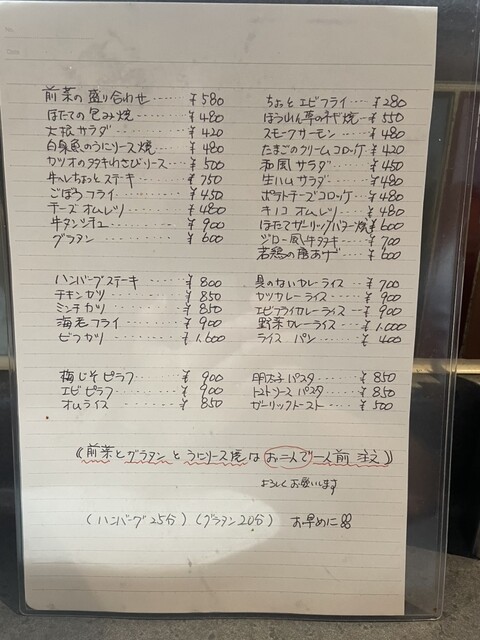 No.
Date
前菜の盛り合わせ‥‥‥¥580
ほたての包み焼‥‥‥¥480
大根サラダ‥‥‥¥420
白身魚のうにソース焼‥‥¥480
カツオのタタキわさびソース‥‥¥500
牛ヘレちょっとステキ‥‥¥750
ごぼうフライ‥‥‥¥450
チーズオムレツ‥‥‥¥480
牛タンシチュー‥‥‥¥900
グラタン‥‥‥¥600
ちょっとエビフライ‥‥¥280
ほうれん草のチーズ焼‥‥¥550
スモークサーモン‥‥¥480
たまごのクリームコロッケ‥‥¥420
和風サラダ‥‥¥450
生ハムサラダ‥‥¥480
ポテトチーズコロッケ‥‥¥480
キノコオムレツ‥‥¥480
ほたてガーリックバター焼¥600
ジロー風牛タタキ‥‥¥700
若鶏の唐あげ‥‥¥600
ハンバーグステーキ‥‥‥¥800
チキンカツ‥‥‥¥850
ミンチカツ‥‥‥¥850
海老フライ‥‥‥¥900
ビフカツ‥‥‥¥1,600
具のないカレーライス‥‥¥700
カツカレーライス‥‥¥900
エビフライカレーライス‥‥¥900
野菜カレーライス‥‥¥1,000
ライス パン‥‥¥400
梅じそピラフ‥‥‥¥900
エビピラフ‥‥‥¥900
オムライス‥‥‥¥850
明太子パスタ‥‥¥850
トマトソースパスタ‥‥¥850
ガーリックトースト‥‥¥500
《前菜とグラタンとうにソース焼はお二人で一人前 注文》
よろしくお願いします
(ハンバーグ25分) (グラタン20分) お早めに